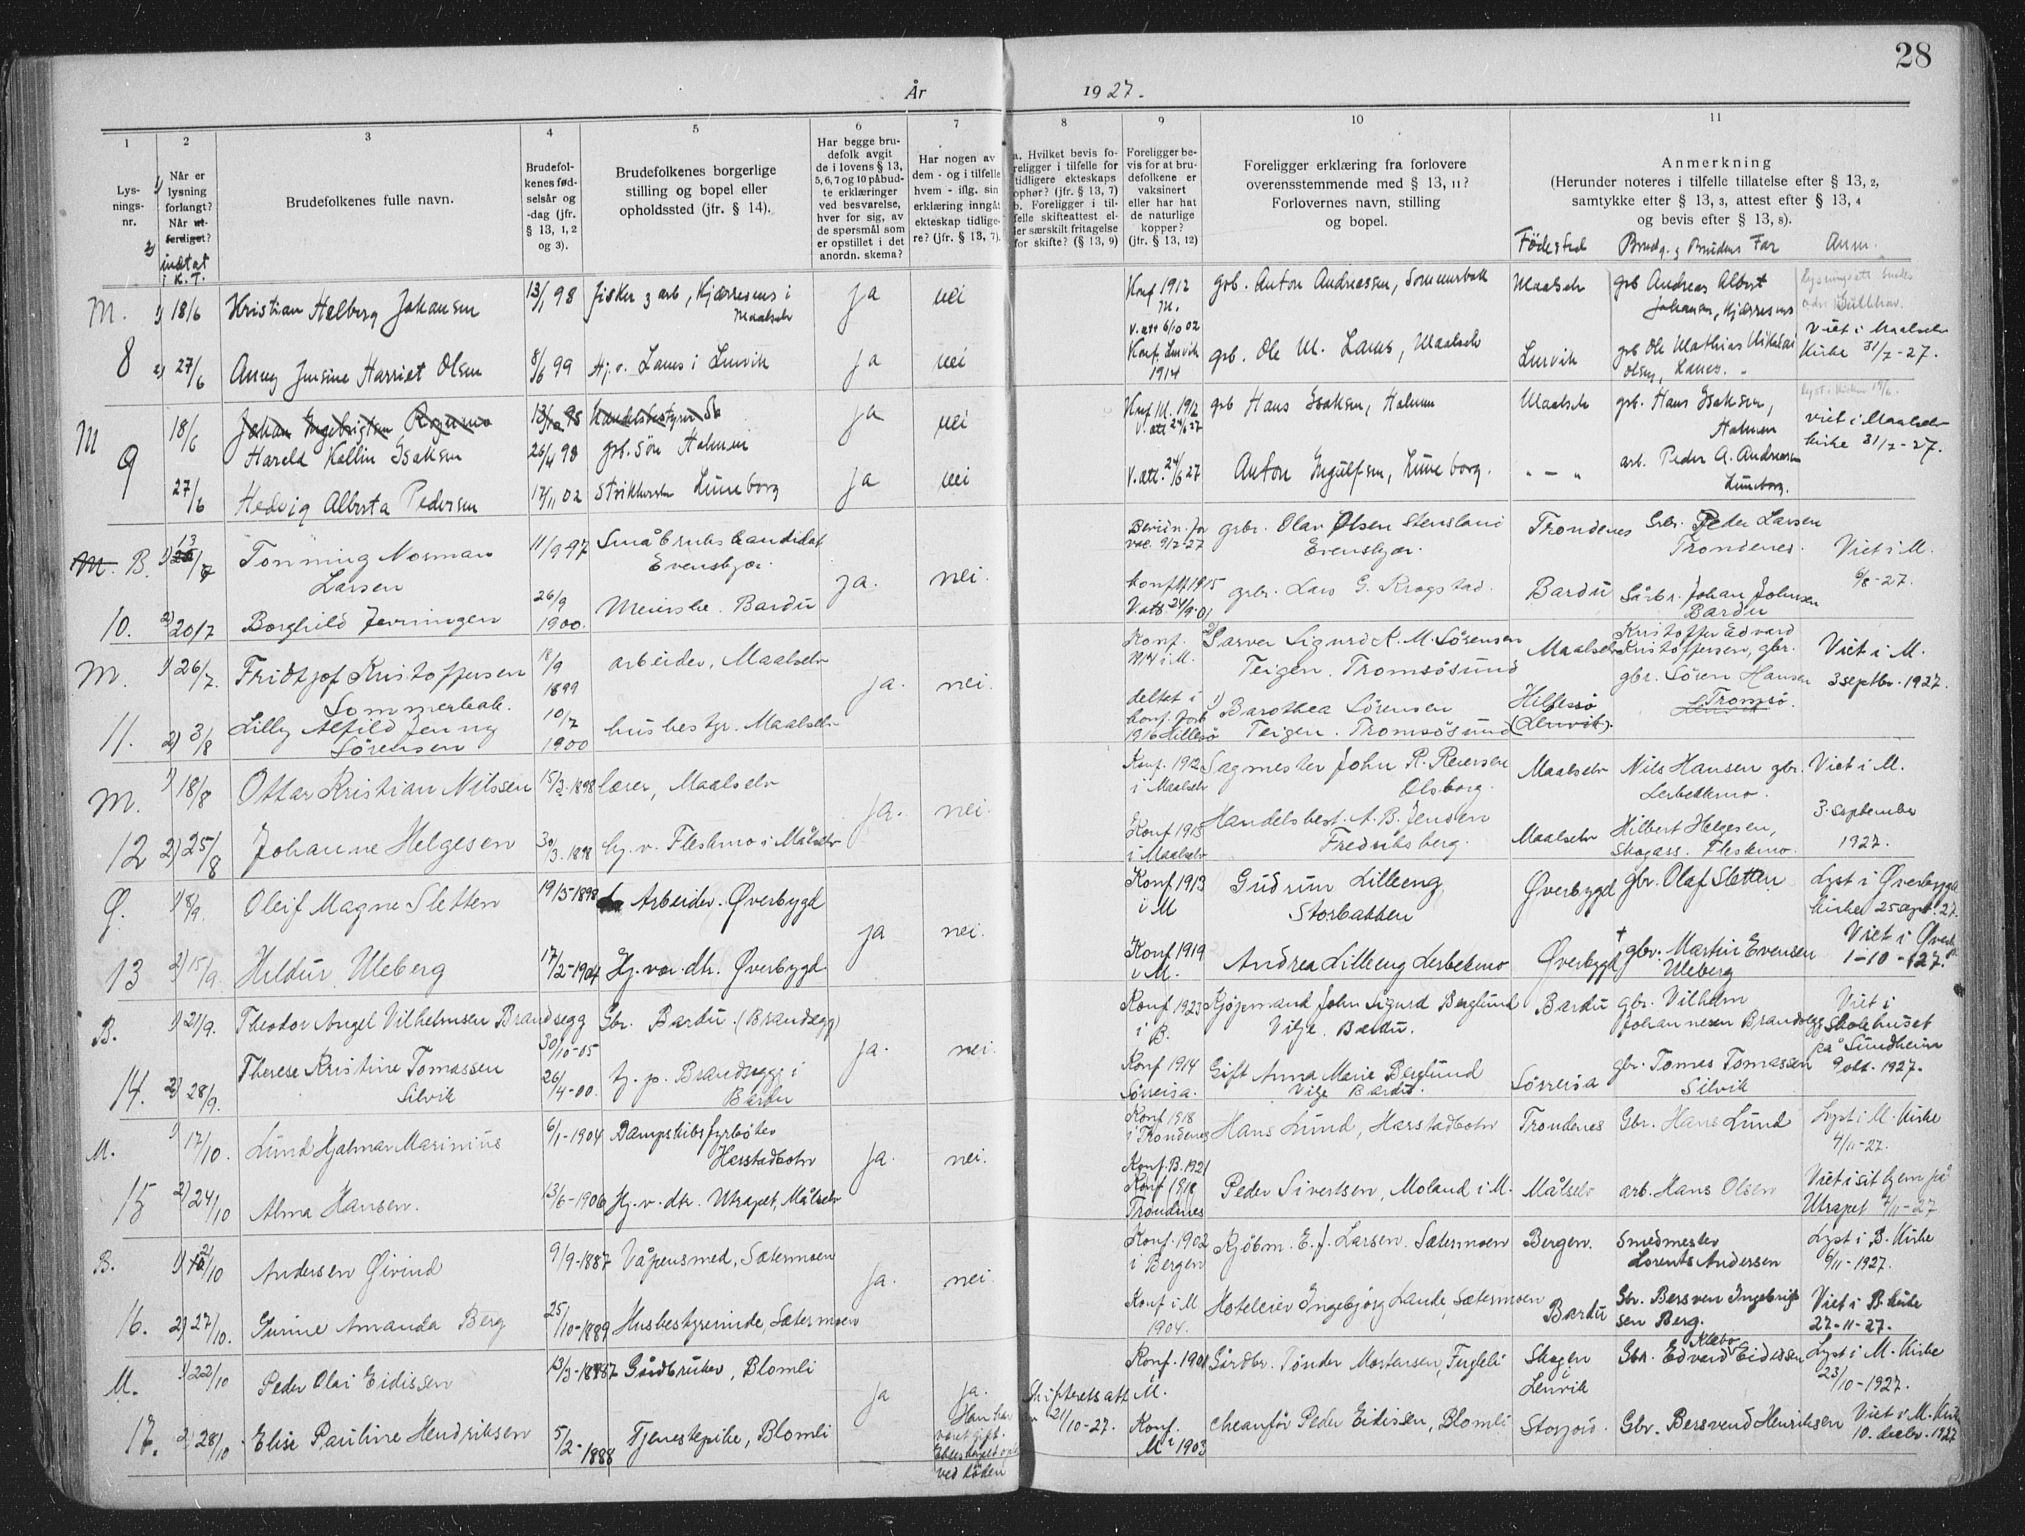 28
År 1927.
1 2 3 4 5 6 7 8 9 10 11
Lys-
nings-
nr.
1) Når er
lysning
forlangt?
Når ut-
ferdiget?
2) indtat
i K. T.
Brudefolkenes fulle navn.
Brudefol-
kenes fød-
selsår og
-dag (jfr.
§ 13, 1, 2
og 3).
Brudefolkenes borgerlige
stilling og bopel eller
opholdssted (jfr. § 14).
Har begge bru-
defolk avgit
de i lovens § 13,
5, 6, 7 og 10 påbud-
te erklæringer
ved besvarelse,
hver for sig, av
de spørsmål som
er opstillet i det
anordn. skema?
Har nogen av
dem - og i tilfelle
hvem - iflg. sin
erklæring inngåt
ekteskap tidlige-
re? (jfr. § 13, 7).
a. Hvilket bevis fo-
religger i tilfelle for
tidligere ekteskaps
ophør? (jfr. § 13, 7)
b. Foreligger i til-
felle skifteattest el-
ler særskilt fritagelse
for skifte? (§ 13, 9)
Foreligger be-
vis for at bru-
defolkene er
vaksinert
eller har hat
de naturlige
kopper?
(jfr. § 13, 12)
Foreligger erklæring fra forlovere
overensstemmende med § 13, 11?
Forlovernes navn, stilling
og bopel.
Anmerkning
(Herunder noteres i tilfelle tillatelse efter § 13, 2,
samtykke efter § 13, 3, attest efter § 13, 4
og bevis efter § 13, 8).
Fødested Brudg. og Brudens Far Anm.
M. 1) 18/6 Kristian Halberg Johansen 13/1 98 fisker og arb, Kjærresnes i
Maalselv
ja nei Konf. 1912
M.
gbr. Anton Andreassen, Sommerbak Maalselv gbr Andreas Albert
Johansen, Kjærresnes
8 2) 27/6 Anny Jensine Harriet Olsen 8/6 99 Hj. v. Lanes i Lenvik ja nei
V. att 6/10 02
Konf. Lenvik
1914
gbr. Ole M. Lanes, Maalselv Lenvik gbr Ole Mathias Nikolai
Olsen, Lanes.
Viet i Maalselv
Kirke 31/7-27.
M 18/6 Johan Ingebrigtsen Rognmo 13/12 95 Handelsbestyrer
Harald Kallin Isaksen 26/4 98 gbr. søn Holmen ja nei
Konf M. 1912
V. att 24/6 27
gbr Hans Isaksen, Holmen Maalselv gbr. Hans Isaksen,
Holmen
Viet i Maalselv
kirke 31/7-27.
9 27/6 Hedvig Alberta Pedersen 17/11 02 Strikkerske Luneborg ja nei
V. att. 24/6 27 Anton Ingulfsen, Luneborg. " - " arb. Peder A. Andreassen
Luneborg.
M. B. 1) 13/7 Tonning Norman
Larsen
11/9 97 Småbrukskandidat
Evenskjær.
ja. nei.
Bevidn. for
vac. 9/2-27
gbr. Olav Olsen Stensland
Evenskjær.
Trondenes Gbr. Peder Larsen
Trondenes.
Viet i M.
6/8-27.
10. 2) 20/7 Borghild Jenningen 26/9
1900.
Meierske. Bardu
Konf. M. 1915
V att 24/9-01
gbr. Lars G. Krogstad. Bardu Gårbr. Johan Johnsen
Bardu
M. 1) 26/7. Fridtjof Kristoffersen
Sommerbak.
18/9
1899
arbeider, Maalselv ja. nei.
Konf.
1914 i M.
2) Garver Sigurd K. M. Sørensen
Teigen. Tromsøsund
Maalselv Kristoffer Edvard
Kristoffersen, gbr.
Viet i M.
3 septbr. 1927.
11. 2) 3/8 Lilly Alfild Jenny
Sørensen
10/7
1900
husbestyr. Maalselv
deltat i
konf. forb
1916 Hillesø
1) Barothea Sørensen
Teigen. Tromsøsund
Hillesø
(Lenvik).
gbr. Søren Hansen
Tromsø.
Lenvik
M. 1) 18/8 Ottar Kristian Nilssen 15/3-1898 lærer, Maalselv ja. nei.
Konf. 1912
i Maalselv
Sagmester John P. Reiersen
Olsborg.
Maalselv Nils Hansen gbr.
Lerbekkmo.
Viet i M.
3 september
1927.
12 2) 25/8 Johanne Helgesen 30/3. 1898 hj. v. Fleskmo i Målselv
Konf 1913
i Maalselv
Handelsbest. A. B. Jensen
Fredriksberg.
Maalselv Hilbert Helgesen,
Skogass. Fleskmo.
Ø. 1) 8/9. Oleif Magne Sletten 19/5-1898 Arbeider. Øverbygd ja nei.
Konf 1913
i M
Gudrun Lilleeng
Storbakken
Øverbygd gbr. Olaf Sletten Lyst i Øverbygd
kirke 25 sept. 27.
13 2) 15/9. Hildur Uleberg 17/2-1904 Hj. vær. dtr. Øverbygd
Konf 1919
i M.
Andrea Lilleeng Lerbekmo Øverbygd † gbr. Martin Evensen
Uleberg
Viet i Øverb.
1-10-127.
B. 1) 21/9. Theodor Angel Vilhelmsen Brandsegg
30/10-05
Gbr. Bardu. (Brandsegg) ja. nei.
Konf 1923
i B.
Kjøpmand John Sigurd Berglund
Vilje. Bardu.
Bardu gbr. Vilhelm
Johannesen Brandsegg
Viet i
Skolehuset
på Sundheim
9 okt. 1927.
14. 2) 28/9. Therese Kristine Tomassen
Silvik
26/4-00. tj. p. Brandsegg i
Bardu
Konf 1914
Sørreisa.
Gift Anna Marie Berglund
Vilje Bardu.
Sørreisa gbr. Tomas Tomassen
Silvik
M. 1) 17/10. Lund Hjalmar Marinius 6/1-1904 Dampskibsfyrbøter
Harstadbotn
ja. nei.
Konf 1918
i Trondenes
Hans Lund, Harstadbotn Trondenes Gbr. Hans Lund Lyst i M. Kirke
4/11-27.
15 2) 24/10 Alma Hansen. 13/6-1906 Hj. v. dtr. Utrapet, Målselv
Konf. B. 1921
Konf 1918
Trondenes
Peder Sivertsen, Moland i M. Målselv arb. Hans Olsen Viet i sit hjem på
Utrapet /11-27
B. 1) 21/10 Andersen Øivind 9/9-1887 Våpensmed, Sætermoen ja. nei.
Konf. 1902
i Bergen
Kjøbm. E. J. Larsen. Sætermoen Bergen. Smedmester
Lorents Andersen
Lyst i B. Kirke
6/11-1927.
16. 2) 27/10. Gurine Amanda Berg 25/10-1889 Husbestyrerinde, Sætermoen
Konf i M
1904.
Hoteleier Ingebjørg Lande, Sætermoen Bardu Gbr. Bersven Ingebrigt-
sen Berg.
Viet i B. kirke
27-11-27.
M. 1) 22/10 Peder Olai Eidissen 13/3-1887 Gårdbruker, Blomli ja ja.
Han har
været gift.
Ekteskapet opl.
ved døden
Skifteretsatt
av 21/10-27.
Konf. 1901
M.
Gårdbr. Tønder Mortensen, Fagerli Skogen
i
Lenvik
Gbr. Edvard Klebo Eidissen Lyst i M. Kirke
23/10-1927.
17. 2) 28/10 Elise Pauline Hendriksen 5/2-1888 Tjenestepike, Blomli
Konf.
M i 1903
Peder Eidissen, Blomli Storjord. Gbr. Bersvend Henriksen Viet i M. Kirke
10. decbr. 1927